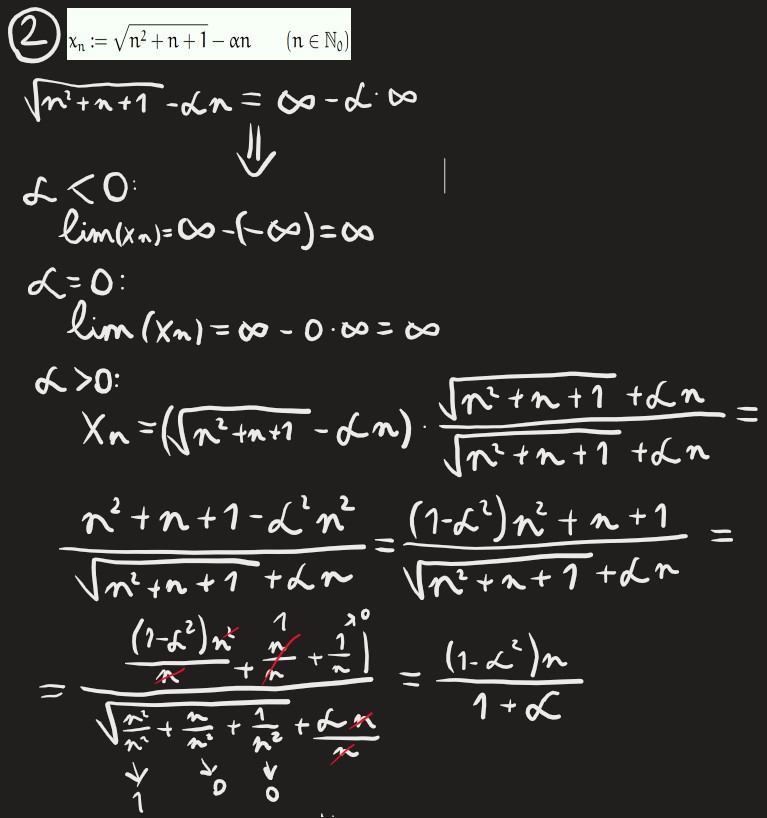 ② xₙ := √(n² + n + 1) − αn (n ∈ ℕ₀)
√(n²+n+1) - αn = ∞ - α·∞
⇓
α < 0:
lim(xₙ) = ∞ -(-∞) = ∞
α = 0:
lim (xₙ) = ∞ - 0·∞ = ∞
α > 0:
Xₙ = (√(n²+n+1) - αn) · (√(n²+n+1) + αn)/(√(n²+n+1) + αn) =
(n²+n+1-α²n²)/(√(n²+n+1) + αn) = ((1-α²)n²+n+1)/(√(n²+n+1) + αn) =
= ((1-α²)n²/n + n/n + 1/n)/(√(n²/n² + n/n² + 1/n²) + αn/n) = ((1-α²)n)/(1+α)
1 → 0
↓ ↓ ↓
1 0 0